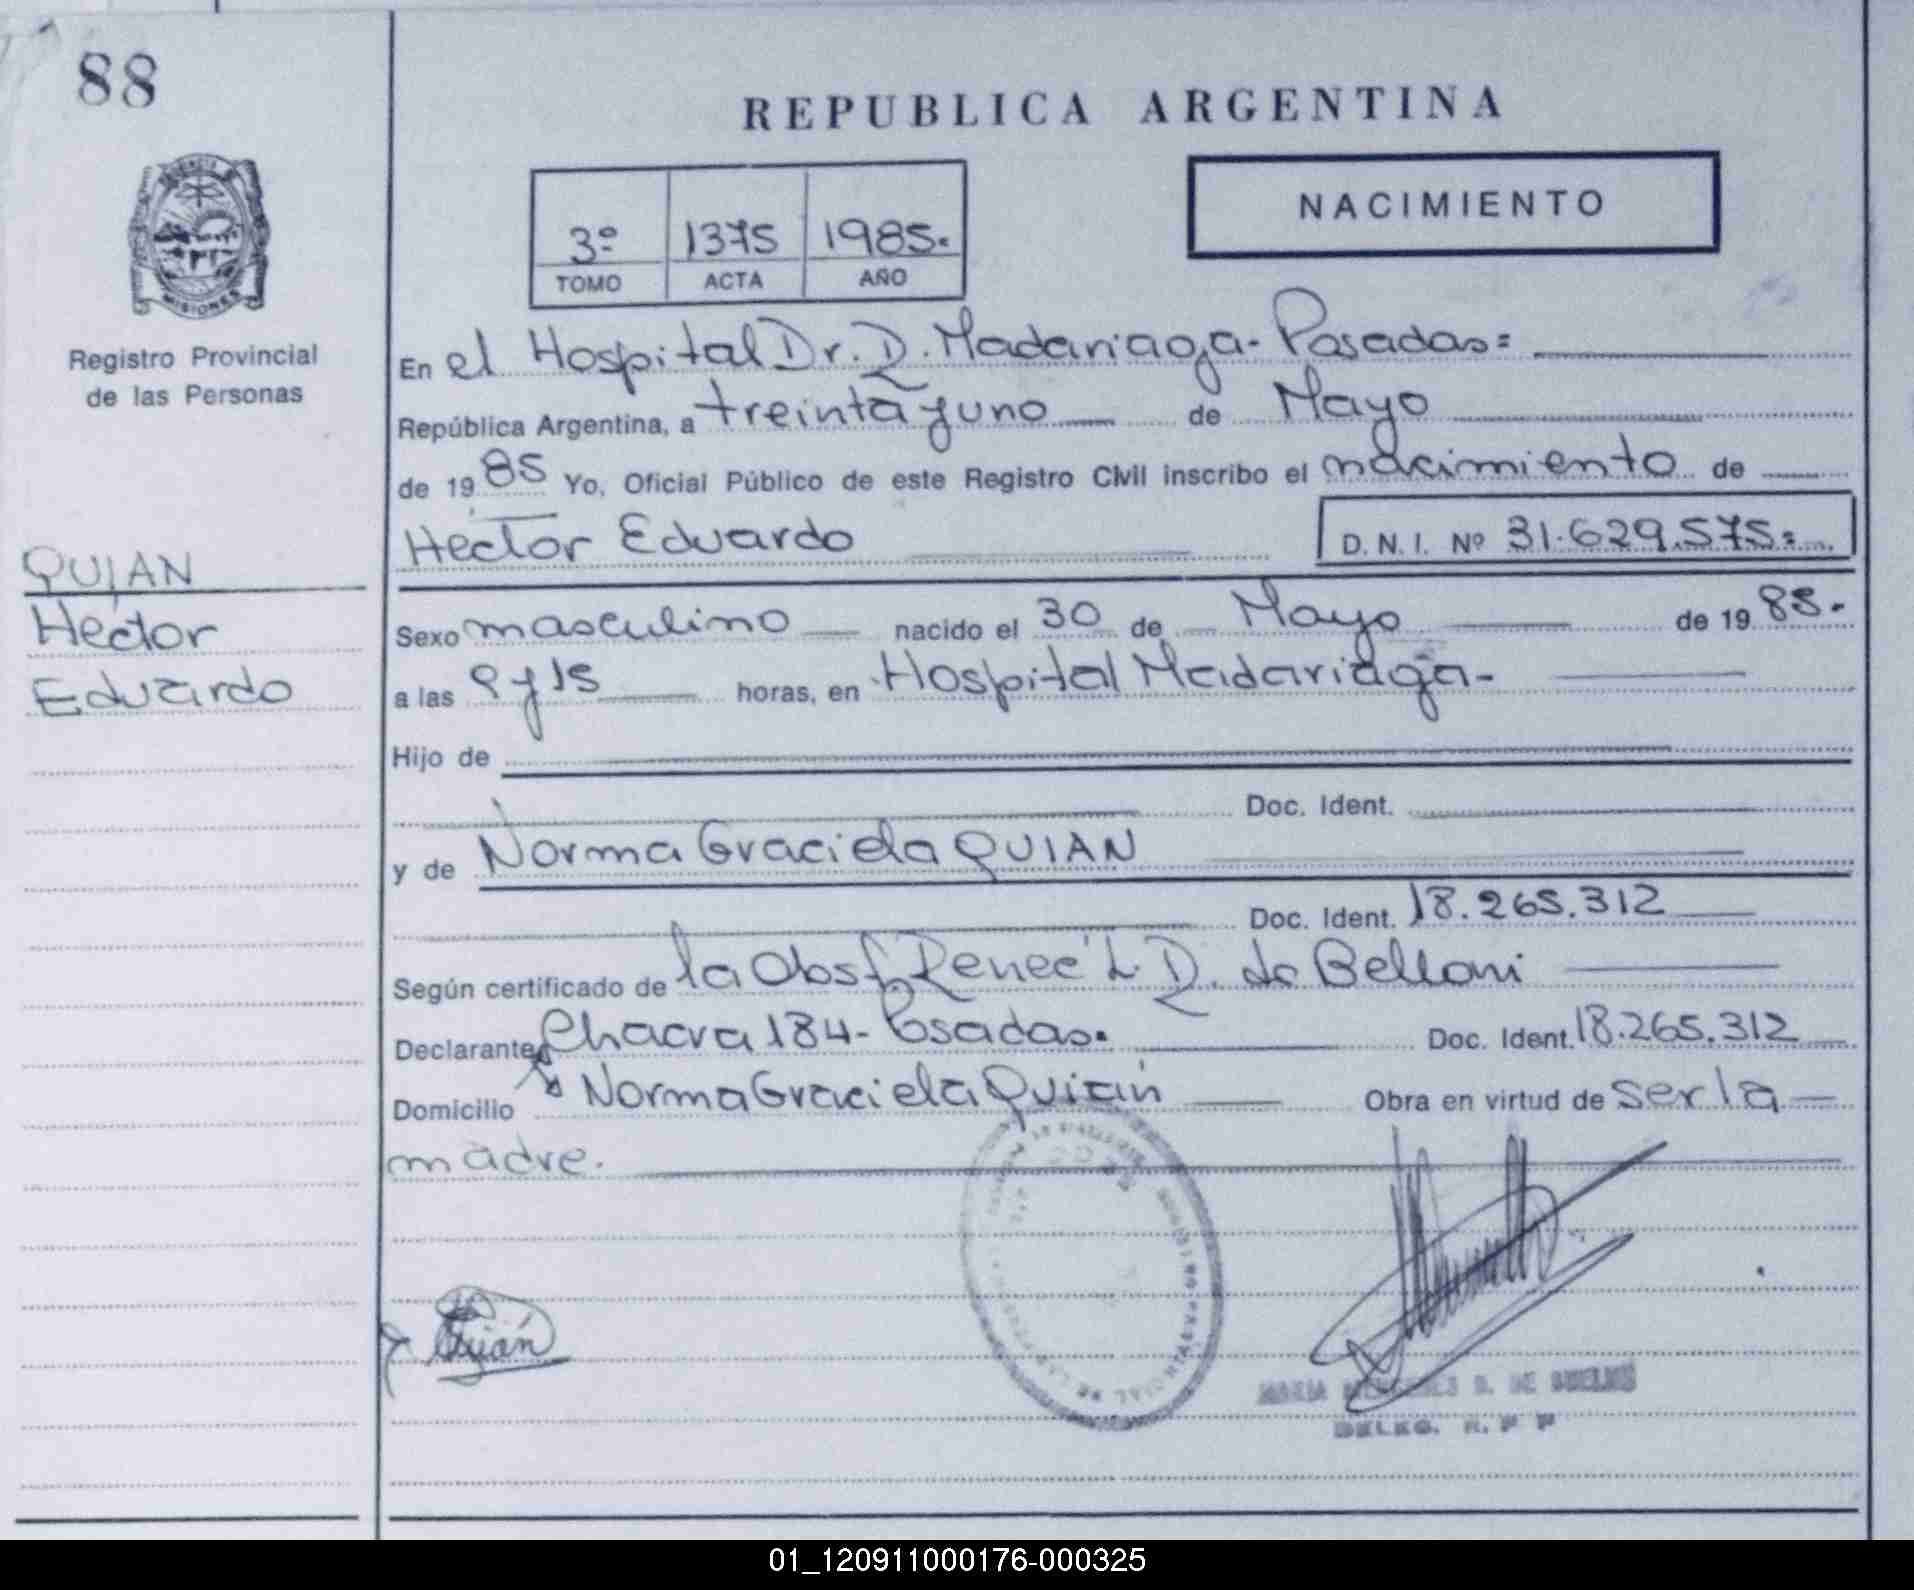 88
REPUBLICA ARGENTINA
3º 1375 1985.
TOMO ACTA AÑO
NACIMIENTO
MISIONES
Registro Provincial
de las Personas
QUIAN
Hector
Eduardo
En el Hospital Dr. R. Madariaga - Posadas =
República Argentina, a treinta y uno de Mayo
de 1985 Yo, Oficial Público de este Registro Civil inscribo el nacimiento de
Hector Eduardo D.N.I. Nº 31.629.575 =
Sexo masculino nacido el 30 de Mayo de 1985.
a las 9 y 15 horas, en Hospital Madariaga -
Hijo de
Doc. Ident.
y de Norma Graciela QUIAN
Doc. Ident. 18.265.312
Según certificado de la Obst. Reneé L. D. de Belloni
Declarante Chacra 184 - Posadas. Doc. Ident. 18.265.312
Domicilio Norma Graciela Quián Obra en virtud de ser la
madre.
Quián
MARIA MERCEDES B. DE
DELEG. R. P P
01_120911000176-000325